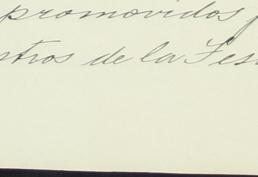 promovidos
stros de la Tes